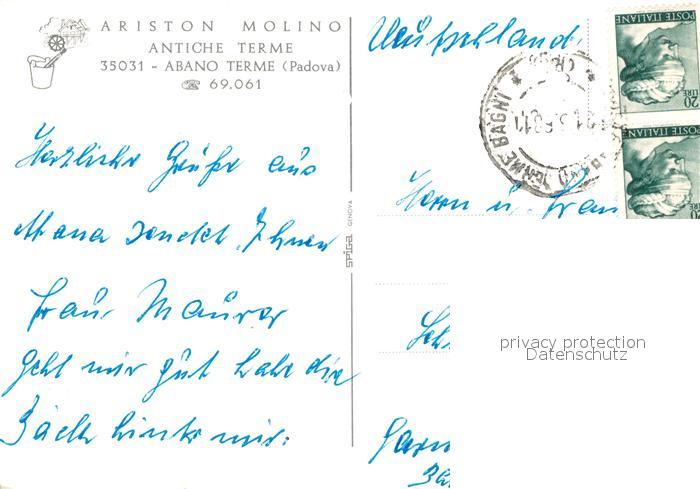 ARISTON MOLINO
ANTICHE TERME
35031 - ABANO TERME (Padova)
☎ 69.061
Herzliche Grüße aus
Abano sendet Ihnen
Frau Maurer
Geht mir gut habe die
Bäder hinter mir.
SPIGA GENOVA
Deutschland.
POSTE ITALIANE
LIRE 20
POSTE ITALIANE
LIRE 20
TERME BAGNI
Herrn u. Frau
privacy protection
Datenschutz